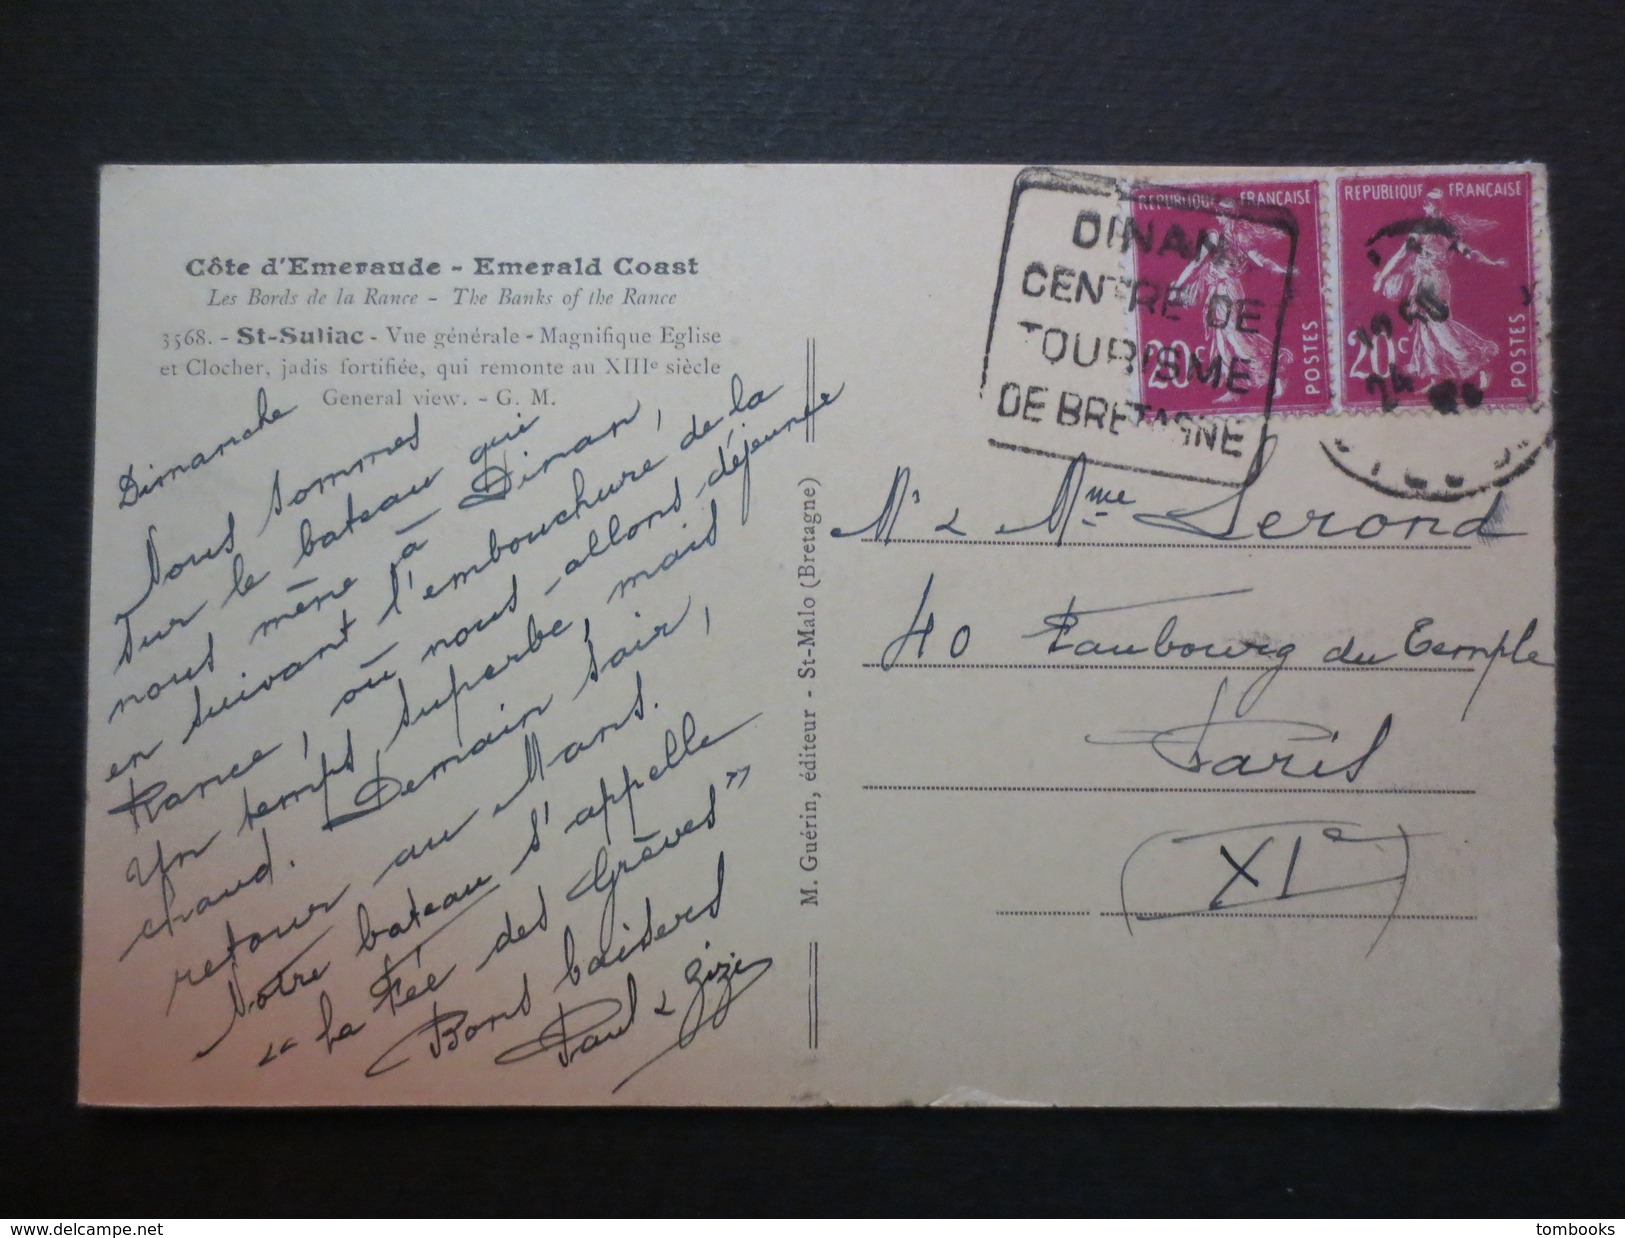 Côte d'Emeraude - Emerald Coast
Les Bords de la Rance - The Banks of the Rance
3568. - St-Suliac - Vue générale - Magnifique Eglise
et Clocher, jadis fortifiée, qui remonte au XIIIe siècle
General view. - G. M.
Dimanche
Nous sommes
sur le bateau qui
nous mène à Dinan,
en suivant l'embouchure de la
Rance, où nous allons déjeuner
Un temps superbe, mais
chaud. Demain soir,
retour au Mans.
Notre bateau s'appelle
"La Fée des Grèves"
Bons baisers
Paul & Zizi
M. Guérin, éditeur - St-Malo (Bretagne)
DINAN
CENTRE DE
TOURISME
DE BRETAGNE
REPUBLIQUE FRANÇAISE
20c
POSTES
REPUBLIQUE FRANÇAISE
20c
POSTES
24
Mr & Mme Lerond
40 Faubourg du Temple
Paris
(XIe)
delcampe.net
tombooks